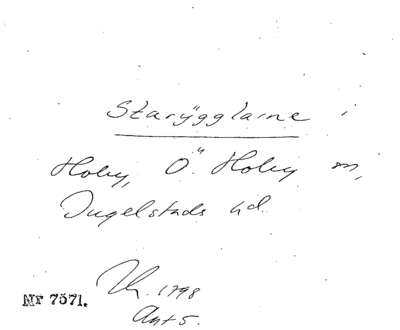 Starÿgglarne i
Hoby, Ö. Hoby sn,
Ingelstads hd.
Nr 7571.
Th. 1798
Ant 5.